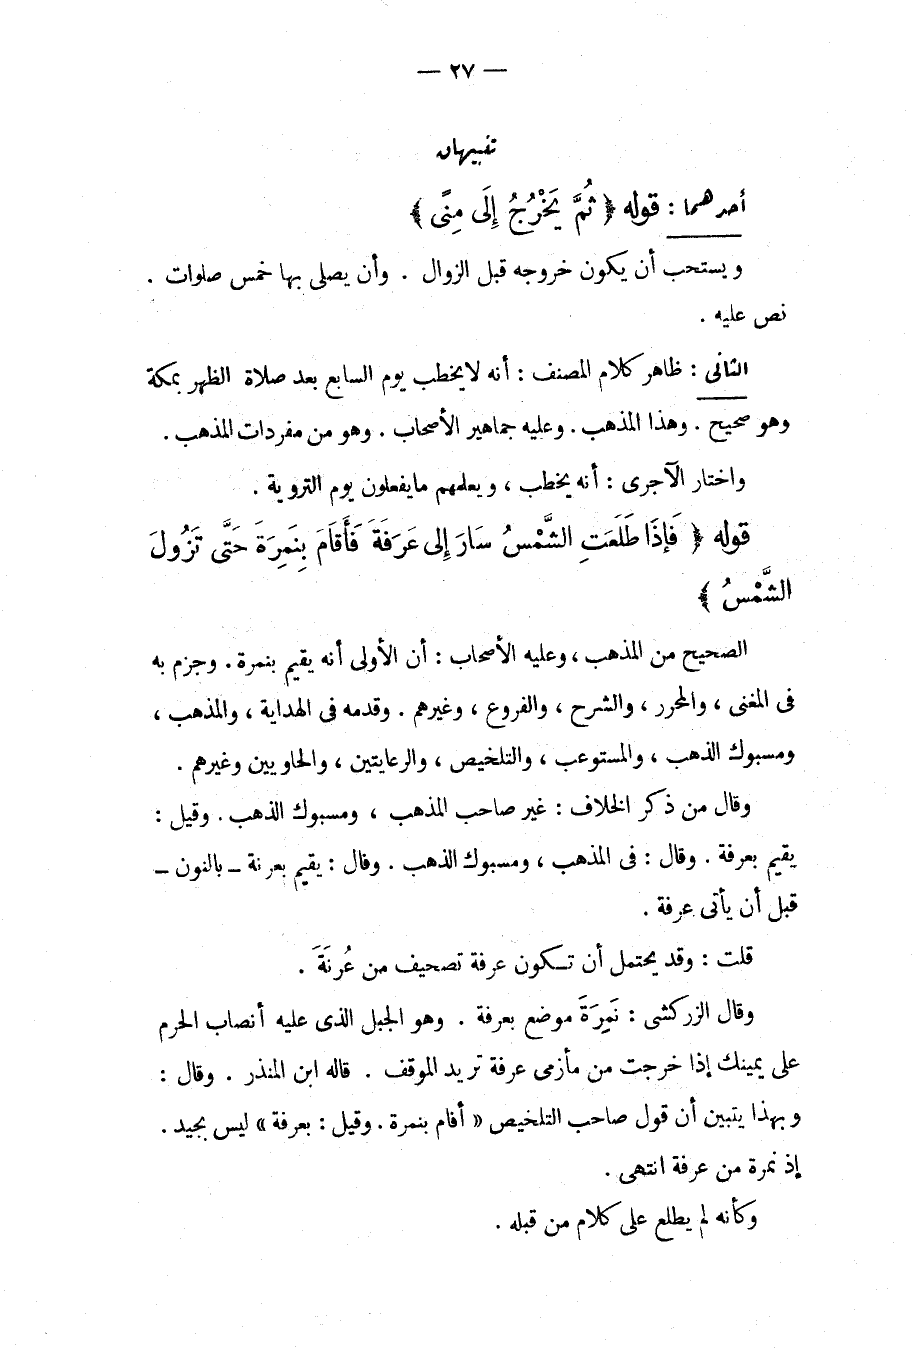 — ٢٧ —
تنبيهان
أحدهما : قوله ﴿ ثُمَّ يَخْرُجُ إِلَى مِنًى ﴾
ويستحب أن يكون خروجه قبل الزوال . وأن يصلى بها خمس صلوات .
نص عليه .
الثانى : ظاهر كلام المصنف : أنه لا يخطب يوم السابع بعد صلاة الظهر بمكة
وهو صحيح . وهذا المذهب . وعليه جماهير الأصحاب . وهو من مفردات المذهب .
واختار الآجرى : أنه يخطب ، ويعلمهم ما يفعلون يوم التروية .
قوله ﴿ فَإِذَا طَلَعَتِ الشَّمْسُ سَارَ إِلى عَرَفَةَ فَأَقَامَ بِنَمِرَةَ حَتَّى تَزُولَ
الشَّمْسُ ﴾
الصحيح من المذهب ، وعليه الأصحاب : أن الأولى أنه يقيم بنمرة . وجزم به
فى المغنى ، والمحرر ، والشرح ، والفروع ، وغيرهم . وقدمه فى الهداية ، والمذهب ،
ومسبوك الذهب ، والمستوعب ، والتلخيص ، والرعايتين ، والحاويين وغيرهم .
وقال من ذكر الخلاف : غير صاحب المذهب ، ومسبوك الذهب . وقيل :
يقيم بعرفة . وقال : فى المذهب ، ومسبوك الذهب . وقال : يقيم بعرنة ـ بالنون ـ
قبل أن يأتى عرفة .
قلت : وقد يحتمل أن تكون عرفة تصحيف من عُرنَةَ .
وقال الزركشى : نَمِرَةَ موضع بعرفة . وهو الجبل الذى عليه أنصاب الحرم
على يمينك إذا خرجت من مأزمى عرفة تريد الموقف . قاله ابن المنذر . وقال :
وبهذا يتبين أن قول صاحب التلخيص « أقام بنمرة . وقيل : بعرفة » ليس بجيد .
إذ نمرة من عرفة انتهى .
وكأنه لم يطلع على كلام من قبله .